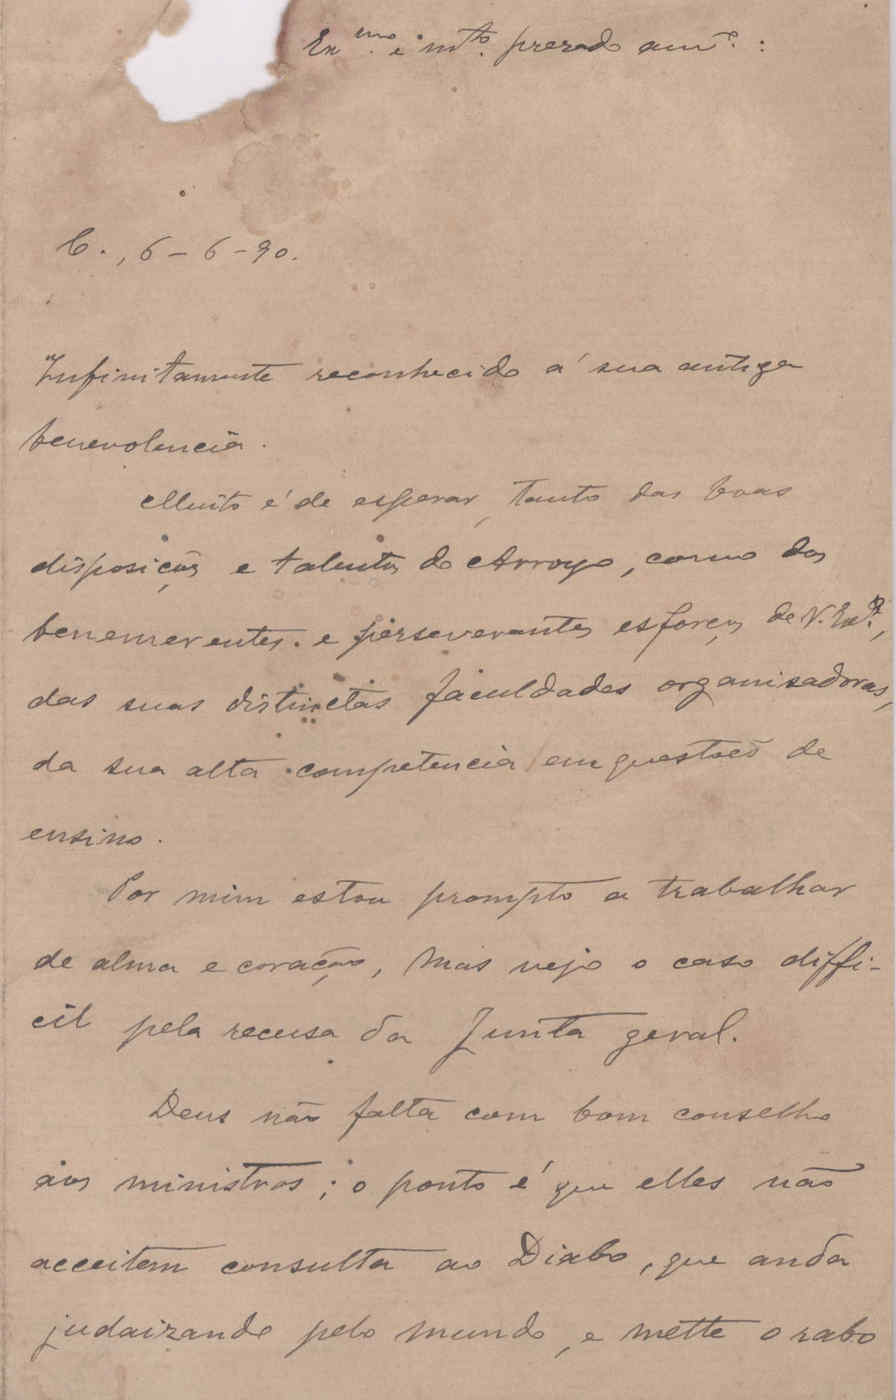 Ex.mo e mto. prezado am.o :
C., 6 - 6 - 90.
Infinitamente reconhecido á sua antiga
benevolencia.
Muito é de esperar, tanto das boas
disposições e talentos do Arroyo, como dos
benemerentes e perseverantes esforços de V. Ex.a,
das suas distinctas faculdades organisadoras,
da sua alta competencia em questões de
ensino.
Por mim estou prompto a trabalhar
de alma e coração, mas vejo o caso diffi-
cil pela recusa da Junta geral.
Deus não falta com bom conselho
aos ministros; o ponto é que elles não
acceitem consulta ao Diabo, que anda
judaizando pelo mundo, e mette o rabo